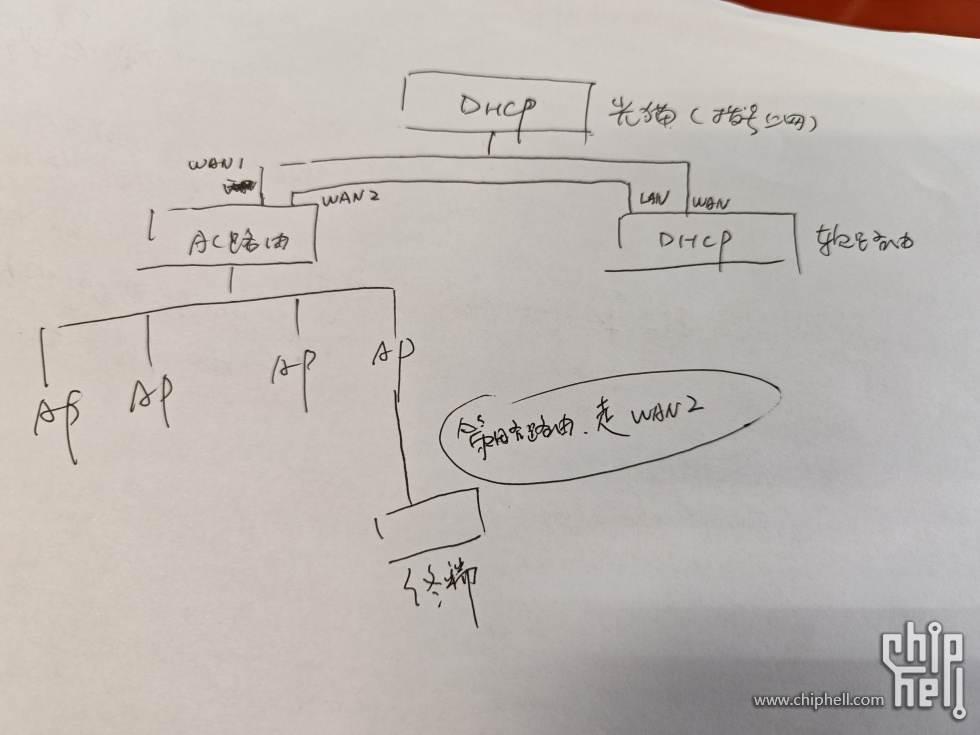 DHCP
光猫(拨号上网)
WAN1
WAN2
LAN
WAN
AC路由
DHCP
软路由
AP
AP
AP
AP
策略路由.走 WAN2
终端
www.chiphell.com
chip
hell